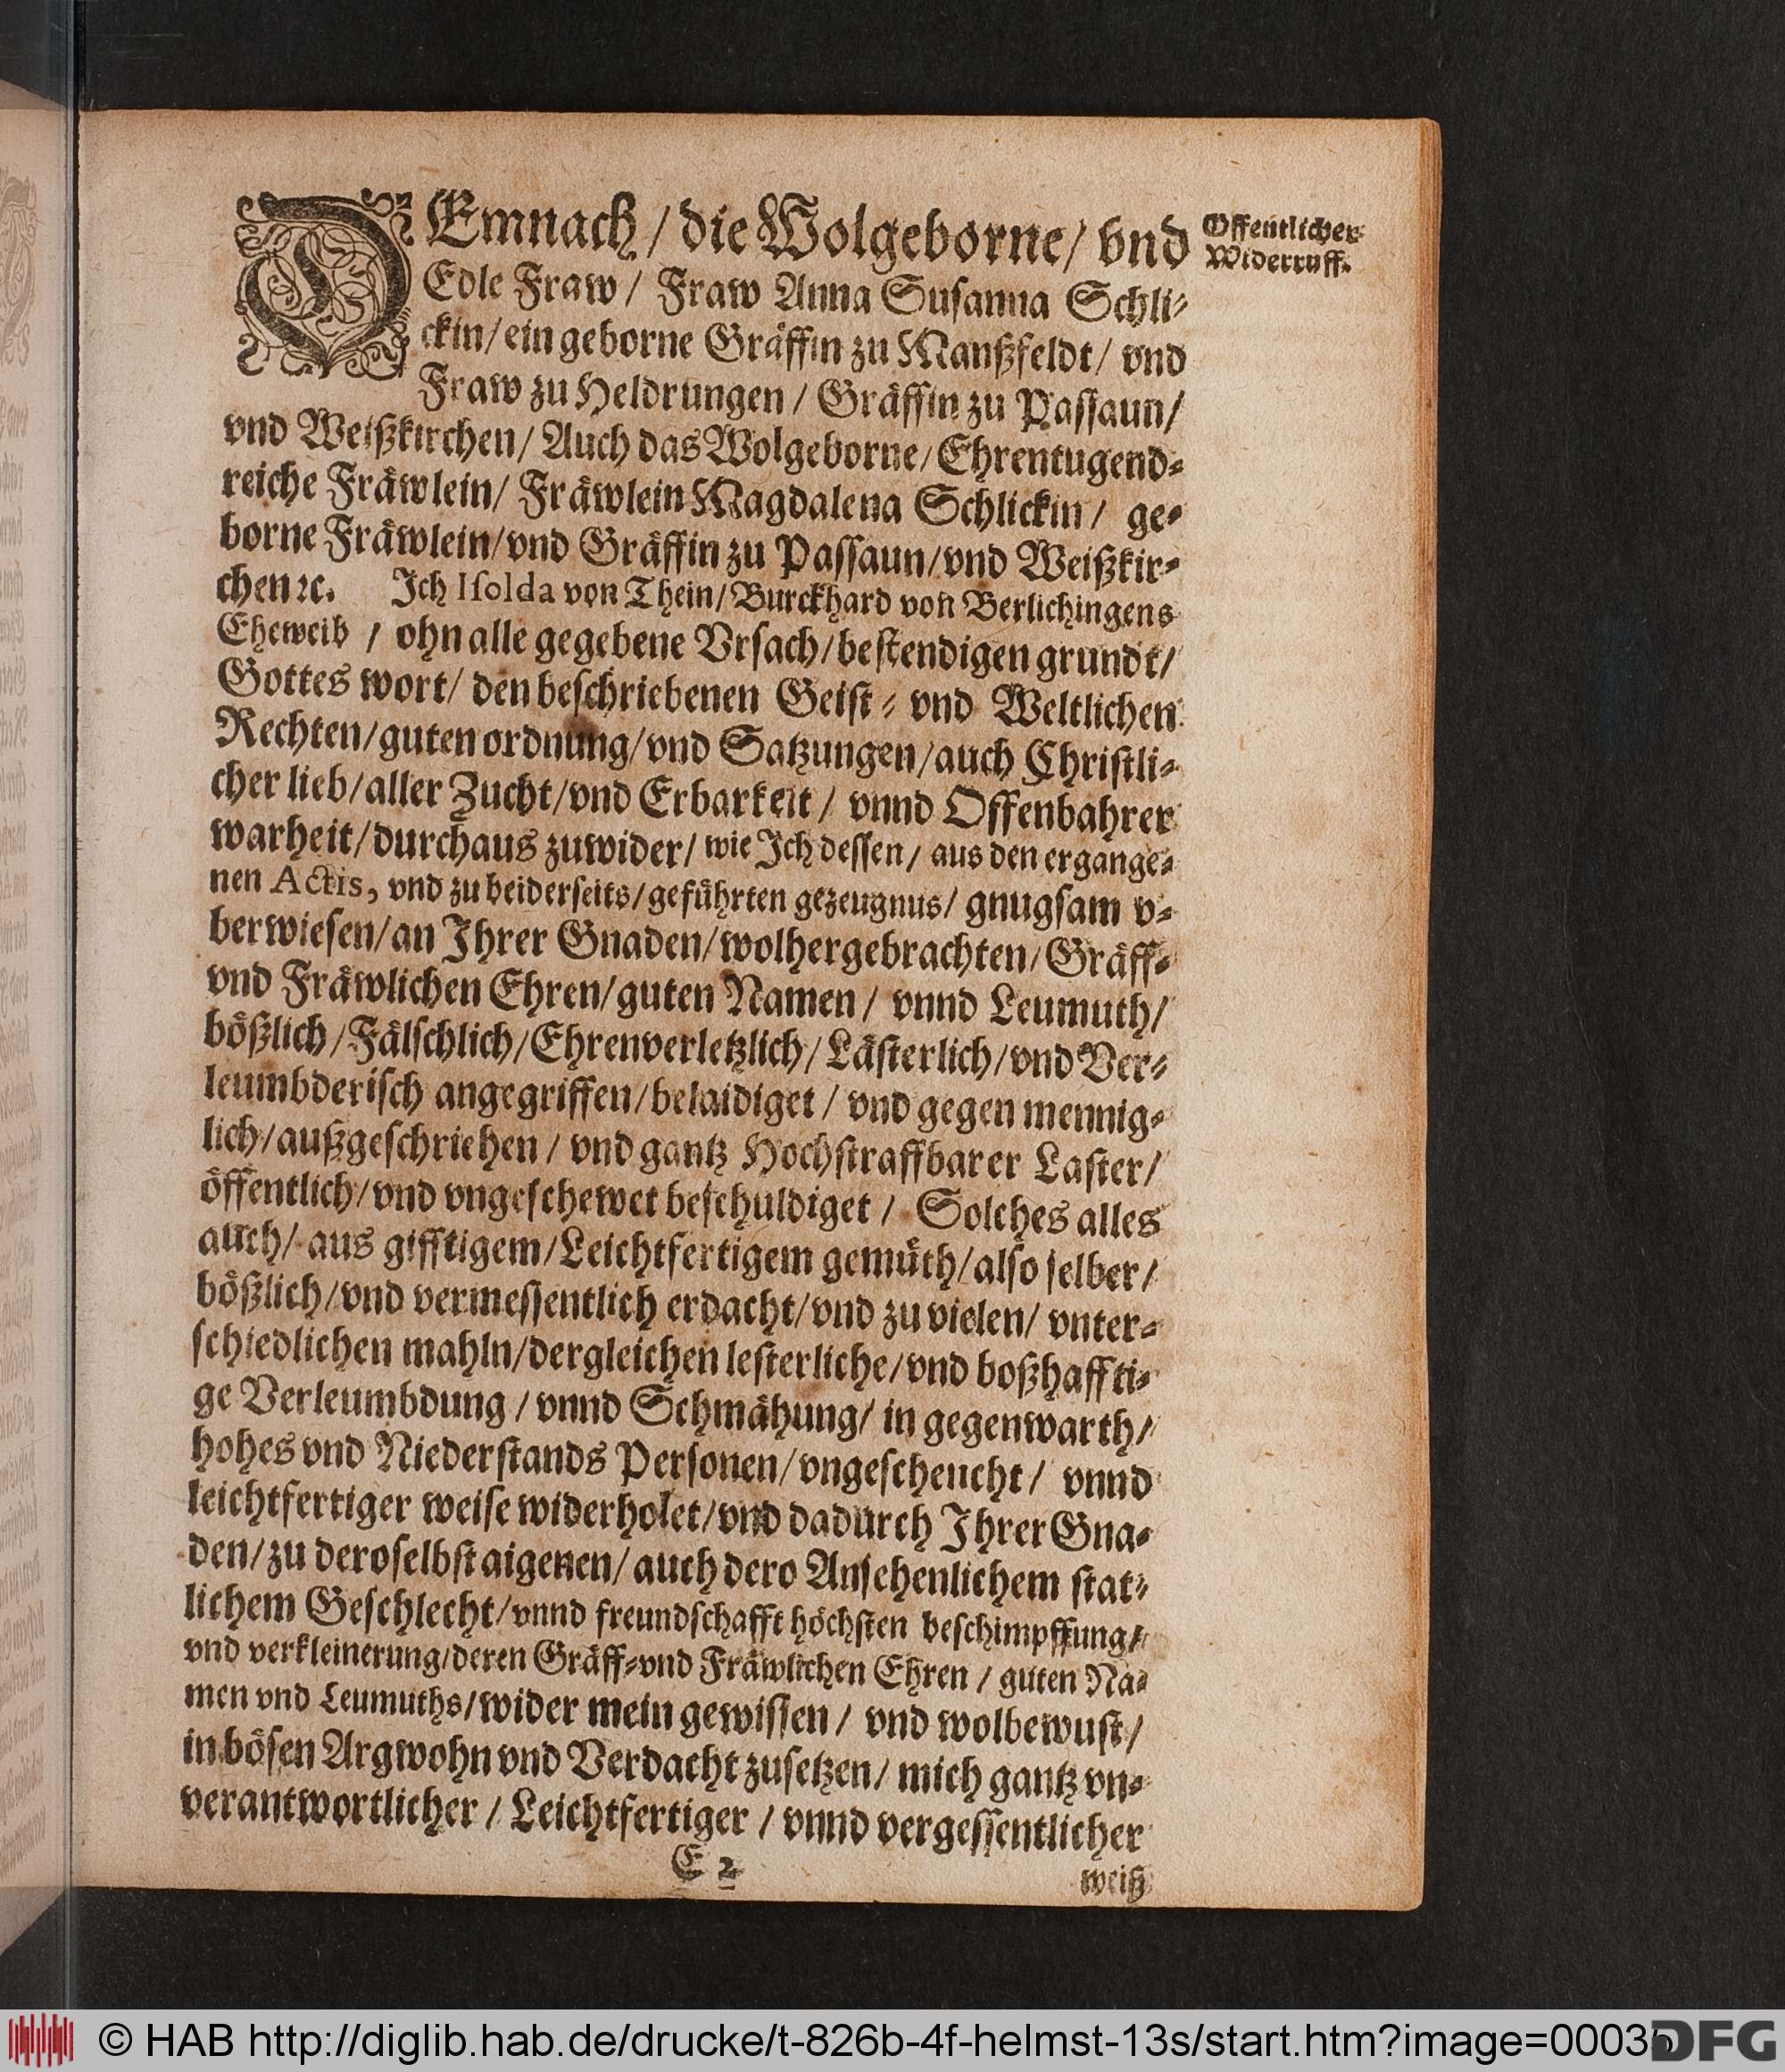 DEmnach / die Wolgeborne / vnd
Offentlicher
Widerruff.
Edle Fraw / Fraw Anna Susanna Schli-
ckin / ein geborne Gräffin zu Manßfeldt / vnd
Fraw zu Heldrungen / Gräffin zu Passaun /
vnd Weißkirchen / Auch das Wolgeborne / Ehrentugend-
reiche Fräwlein / Fräwlein Magdalena Schlickin / ge-
borne Fräwlein / vnd Gräffin zu Passaun / vnd Weißkir-
chen ꝛc. Ich Isolda von Thein / Burckhard von Berlichingens
Eheweib / ohn alle gegebene Vrsach / bestendigen grundt /
Gottes wort / den beschriebenen Geist- vnd Weltlichen
Rechten / guten ordnung / vnd Satzungen / auch Christli-
cher lieb / aller Zucht / vnd Erbarkeit / vnnd Offenbahrer
warheit / durchaus zuwider / wie Ich dessen / aus den ergange-
nen Actis, vnd zu beiderseits / geführten gezeugnus / gnugsam v-
berwiesen / an Ihrer Gnaden / wolhergebrachten / Gräff-
vnd Fräwlichen Ehren / guten Namen / vnnd Leumuth /
bößlich / Fälschlich / Ehrenverletzlich / Lästerlich / vnd Ver-
leumbderisch angegriffen / belaidiget / vnd gegen mennig-
lich / außgeschriehen / vnd gantz Hochstraffbarer Laster /
öffentlich / vnd vngeschewet beschuldiget / Solches alles
auch / aus gifftigem / Leichtfertigem gemüth / also selber /
bößlich / vnd vermessentlich erdacht / vnd zu vielen / vnter-
schiedlichen mahln / dergleichen lesterliche / vnd boßhaffti-
ge Verleumbdung / vnnd Schmähung / in gegenwarth /
hohes vnd Niederstands Personen / vngescheucht / vnnd
leichtfertiger weise widerholet / vnd dadurch Ihrer Gna-
den / zu deroselbst aigenen / auch dero Ansehenlichem stat-
lichem Geschlecht / vnnd freundschafft höchsten beschimpffung /
vnd verkleinerung / deren Gräff- vnd Fräwlichen Ehren / guten Na-
men vnd Leumuths / wider mein gewissen / vnd wolbewust /
in bösen Argwohn vnd Verdacht zusetzen / mich gantz vn-
verantwortlicher / Leichtfertiger / vnnd vergessentlicher
E 2
weiß
© HAB http://diglib.hab.de/drucke/t-826b-4f-helmst-13s/start.htm?image=00035
DFG